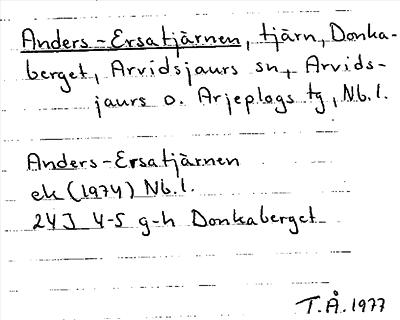 Anders-Ersatjärnen, tjärn, Donka-
berget, Arvidsjaurs sn, Arvids-
jaurs o. Arjeplogs tg, Nb.l.
Anders-Ersatjärnen
ek (1974) Nb.l.
24J 4-5 g-h Donkaberget
T.Å. 1977